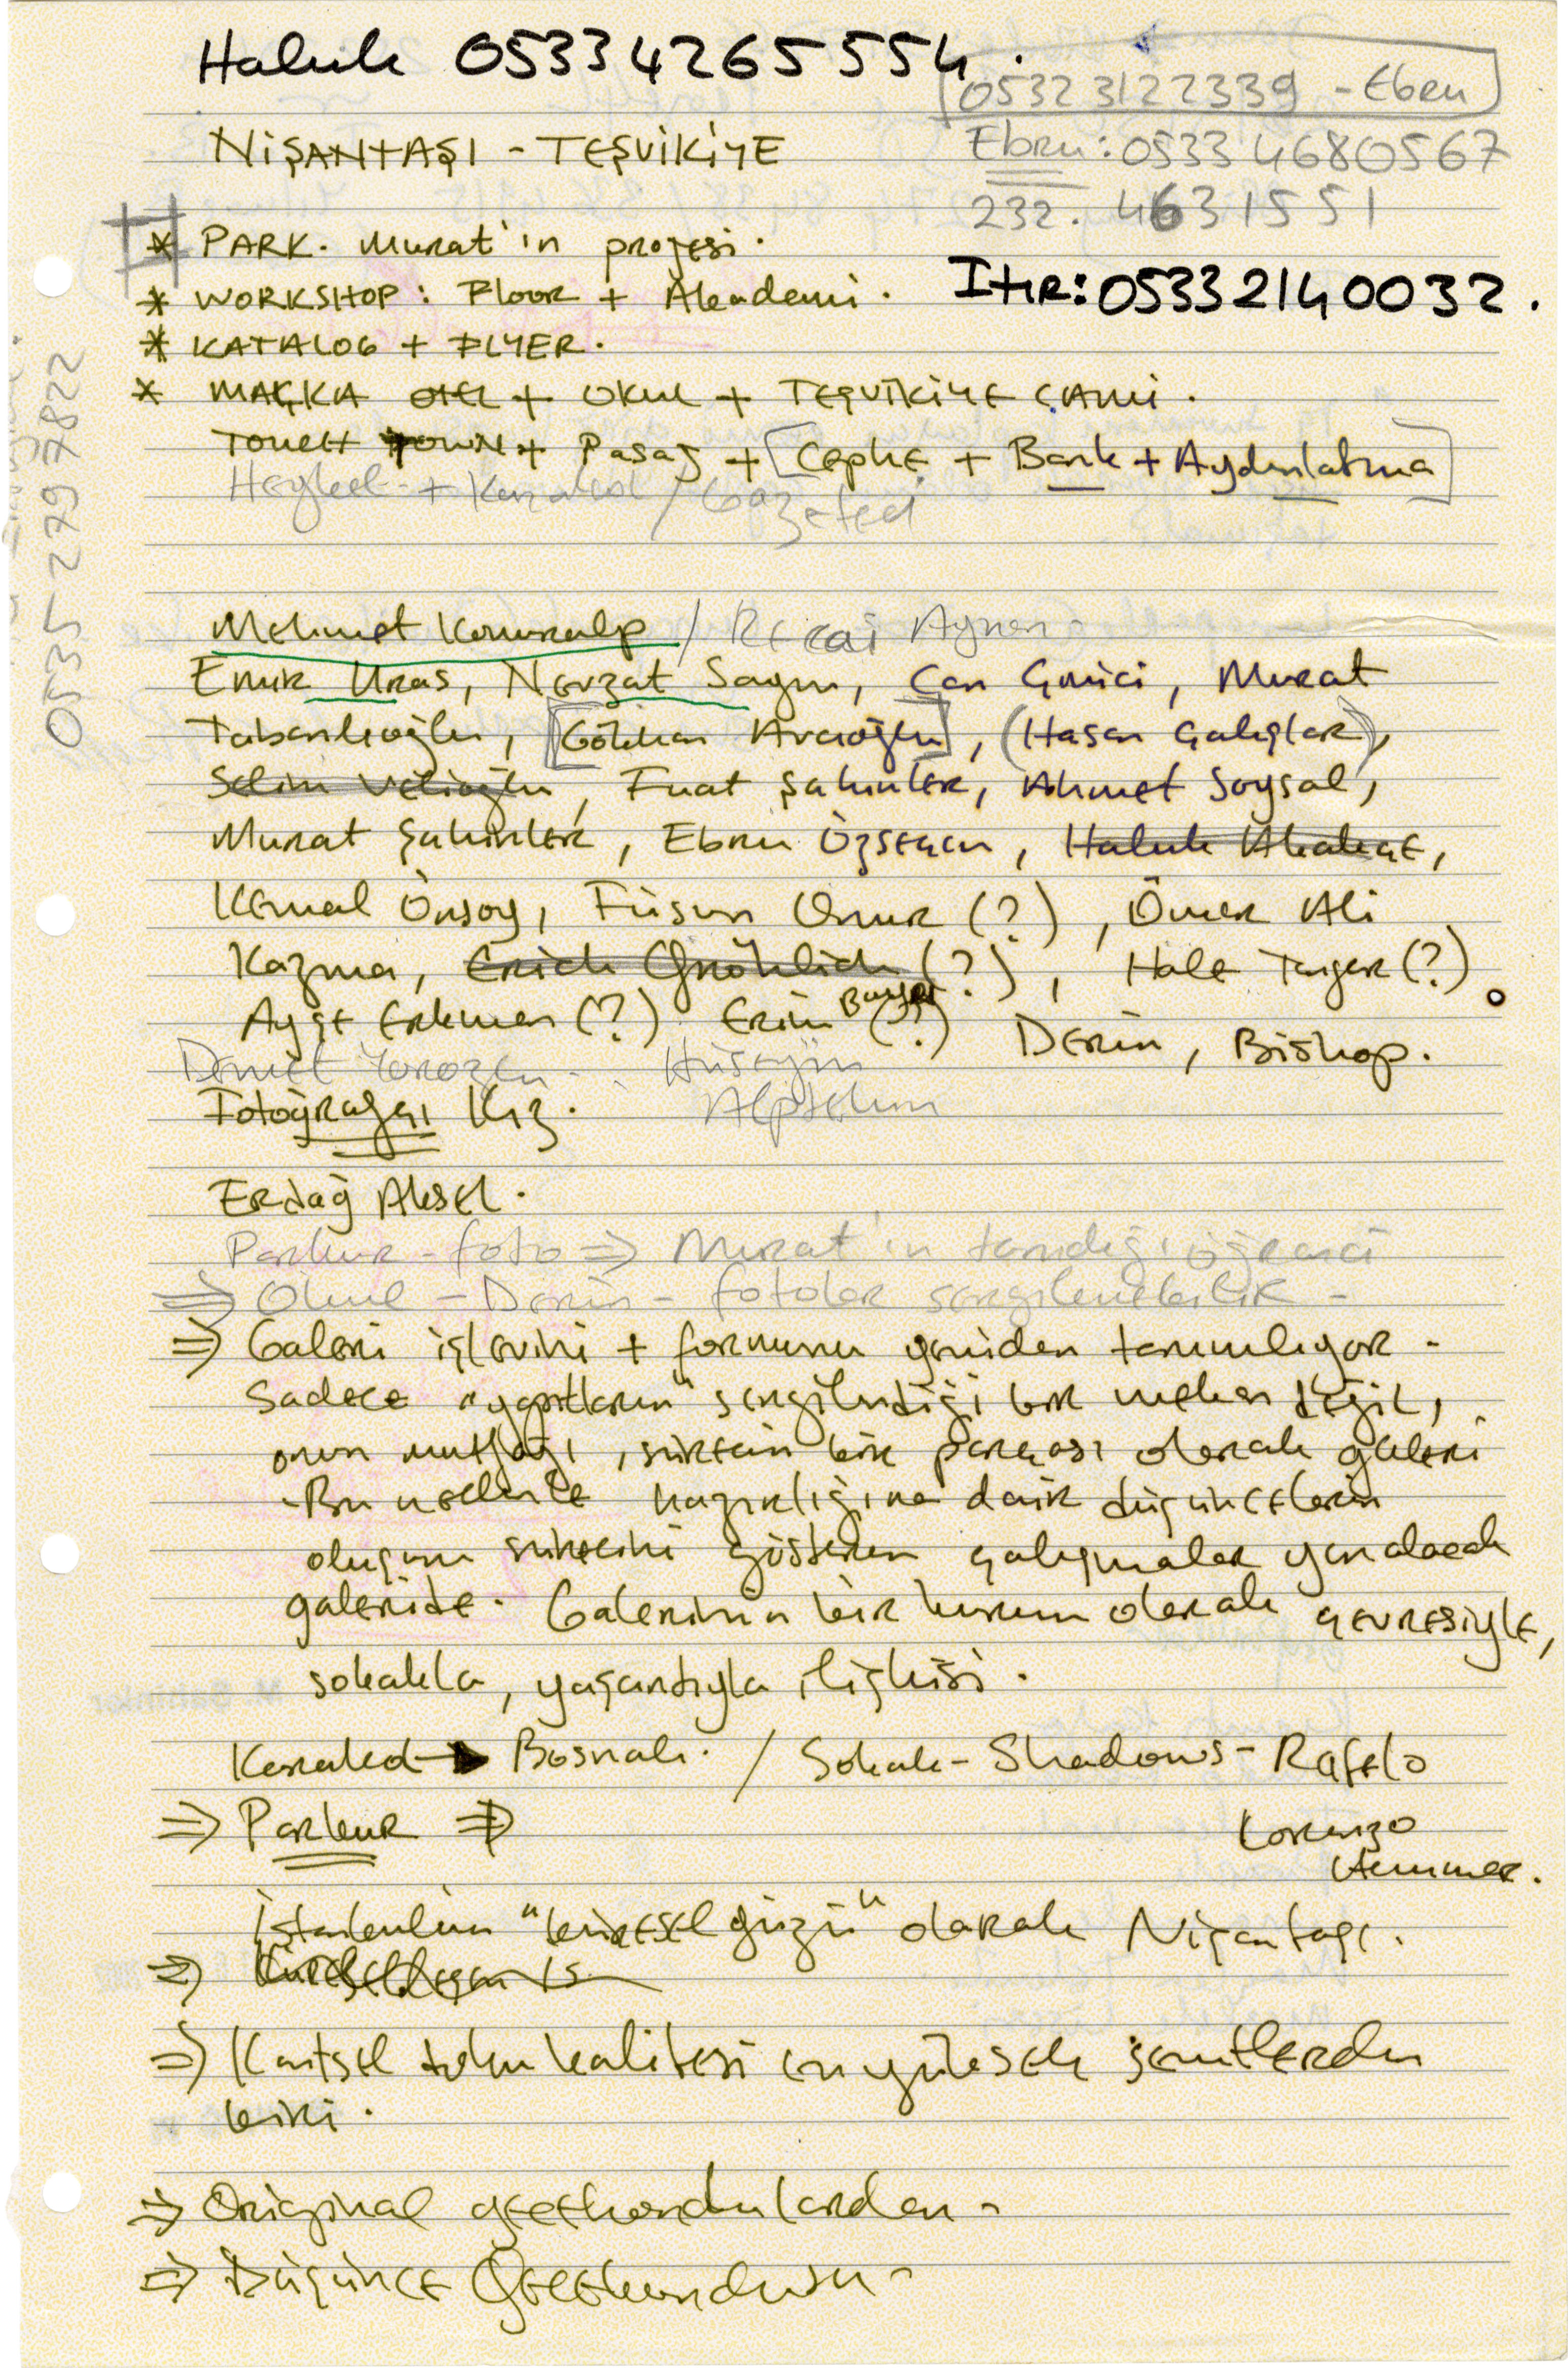 Haluk 05334265554.
05323122339 - Ebru
NİŞANTAŞI - TEŞVİKİYE
Ebru: 0533 4680567
232. 4631551
* PARK. Murat'ın projesi.
* WORKSHOP: Floor + Akademi.
Itır: 05332140032.
* KATALOG + FLYER.
* MAÇKA OTEL + OKUL + TEŞVİKİYE CAMİ.
TOUCH DOWN + Pasaj + [Cephe + Bank + Aydınlatma]
Heykel + Karakol / Gazeteci
0535 279 7822
Mehmet Konuralp / Recai
Emir Uras, Nevzat Sayın, Can Çinici, Murat
Tabanlıoğlu, [Gökhan Avcıoğlu], (Hasan Çalışlar),
Selim Velioğlu, Fuat Şahinler, Ahmet Soysal,
Murat Şahinler, Ebru Özseçen, Haluk Akakçe,
Kemal Önsoy, Füsun Onur (?), Ömer Ali
Kazma, Erich (?), Hale Tenger (?).
Ayşe Erkmen (?) Erim Bayrı (?) Derin, Bishop.
Demet Hüseyin
Fotoğrafçı Kız. Alptekin
Erdağ Aksel.
Parkur - foto ⇒ Murat'ın tanıdığı öğrenci
⇒ Okul - Derin - fotolar sergilenebilir -
⇒ Galeri işlevini + formunu yeniden tanımlıyor -
Sadece "yapıtların" sergilendiği bir mekan değil,
onun mutfağı, sürecin bir parçası olarak galeri
- Bu nedenle hazırlığına dair düşüncelerin
oluşum sürecini gösteren çalışmalar yer alacak
galeride. Galerinin bir kurum olarak çevresiyle,
sokakla, yaşantıyla ilişkisi.
Karakol → Bosnalı. / Sokak - Shadows - Rafelo
Lorenzo
Hemmer.
⇒ Parkur ⇒
İstanbulun "küresel yüzü" olarak Nişantaşı.
⇒
⇒ Kentsel doku kalitesi en yüksek semtlerden
biri.
⇒ Original gecekondulardan -
⇒ Düşünce Gecekondusu -